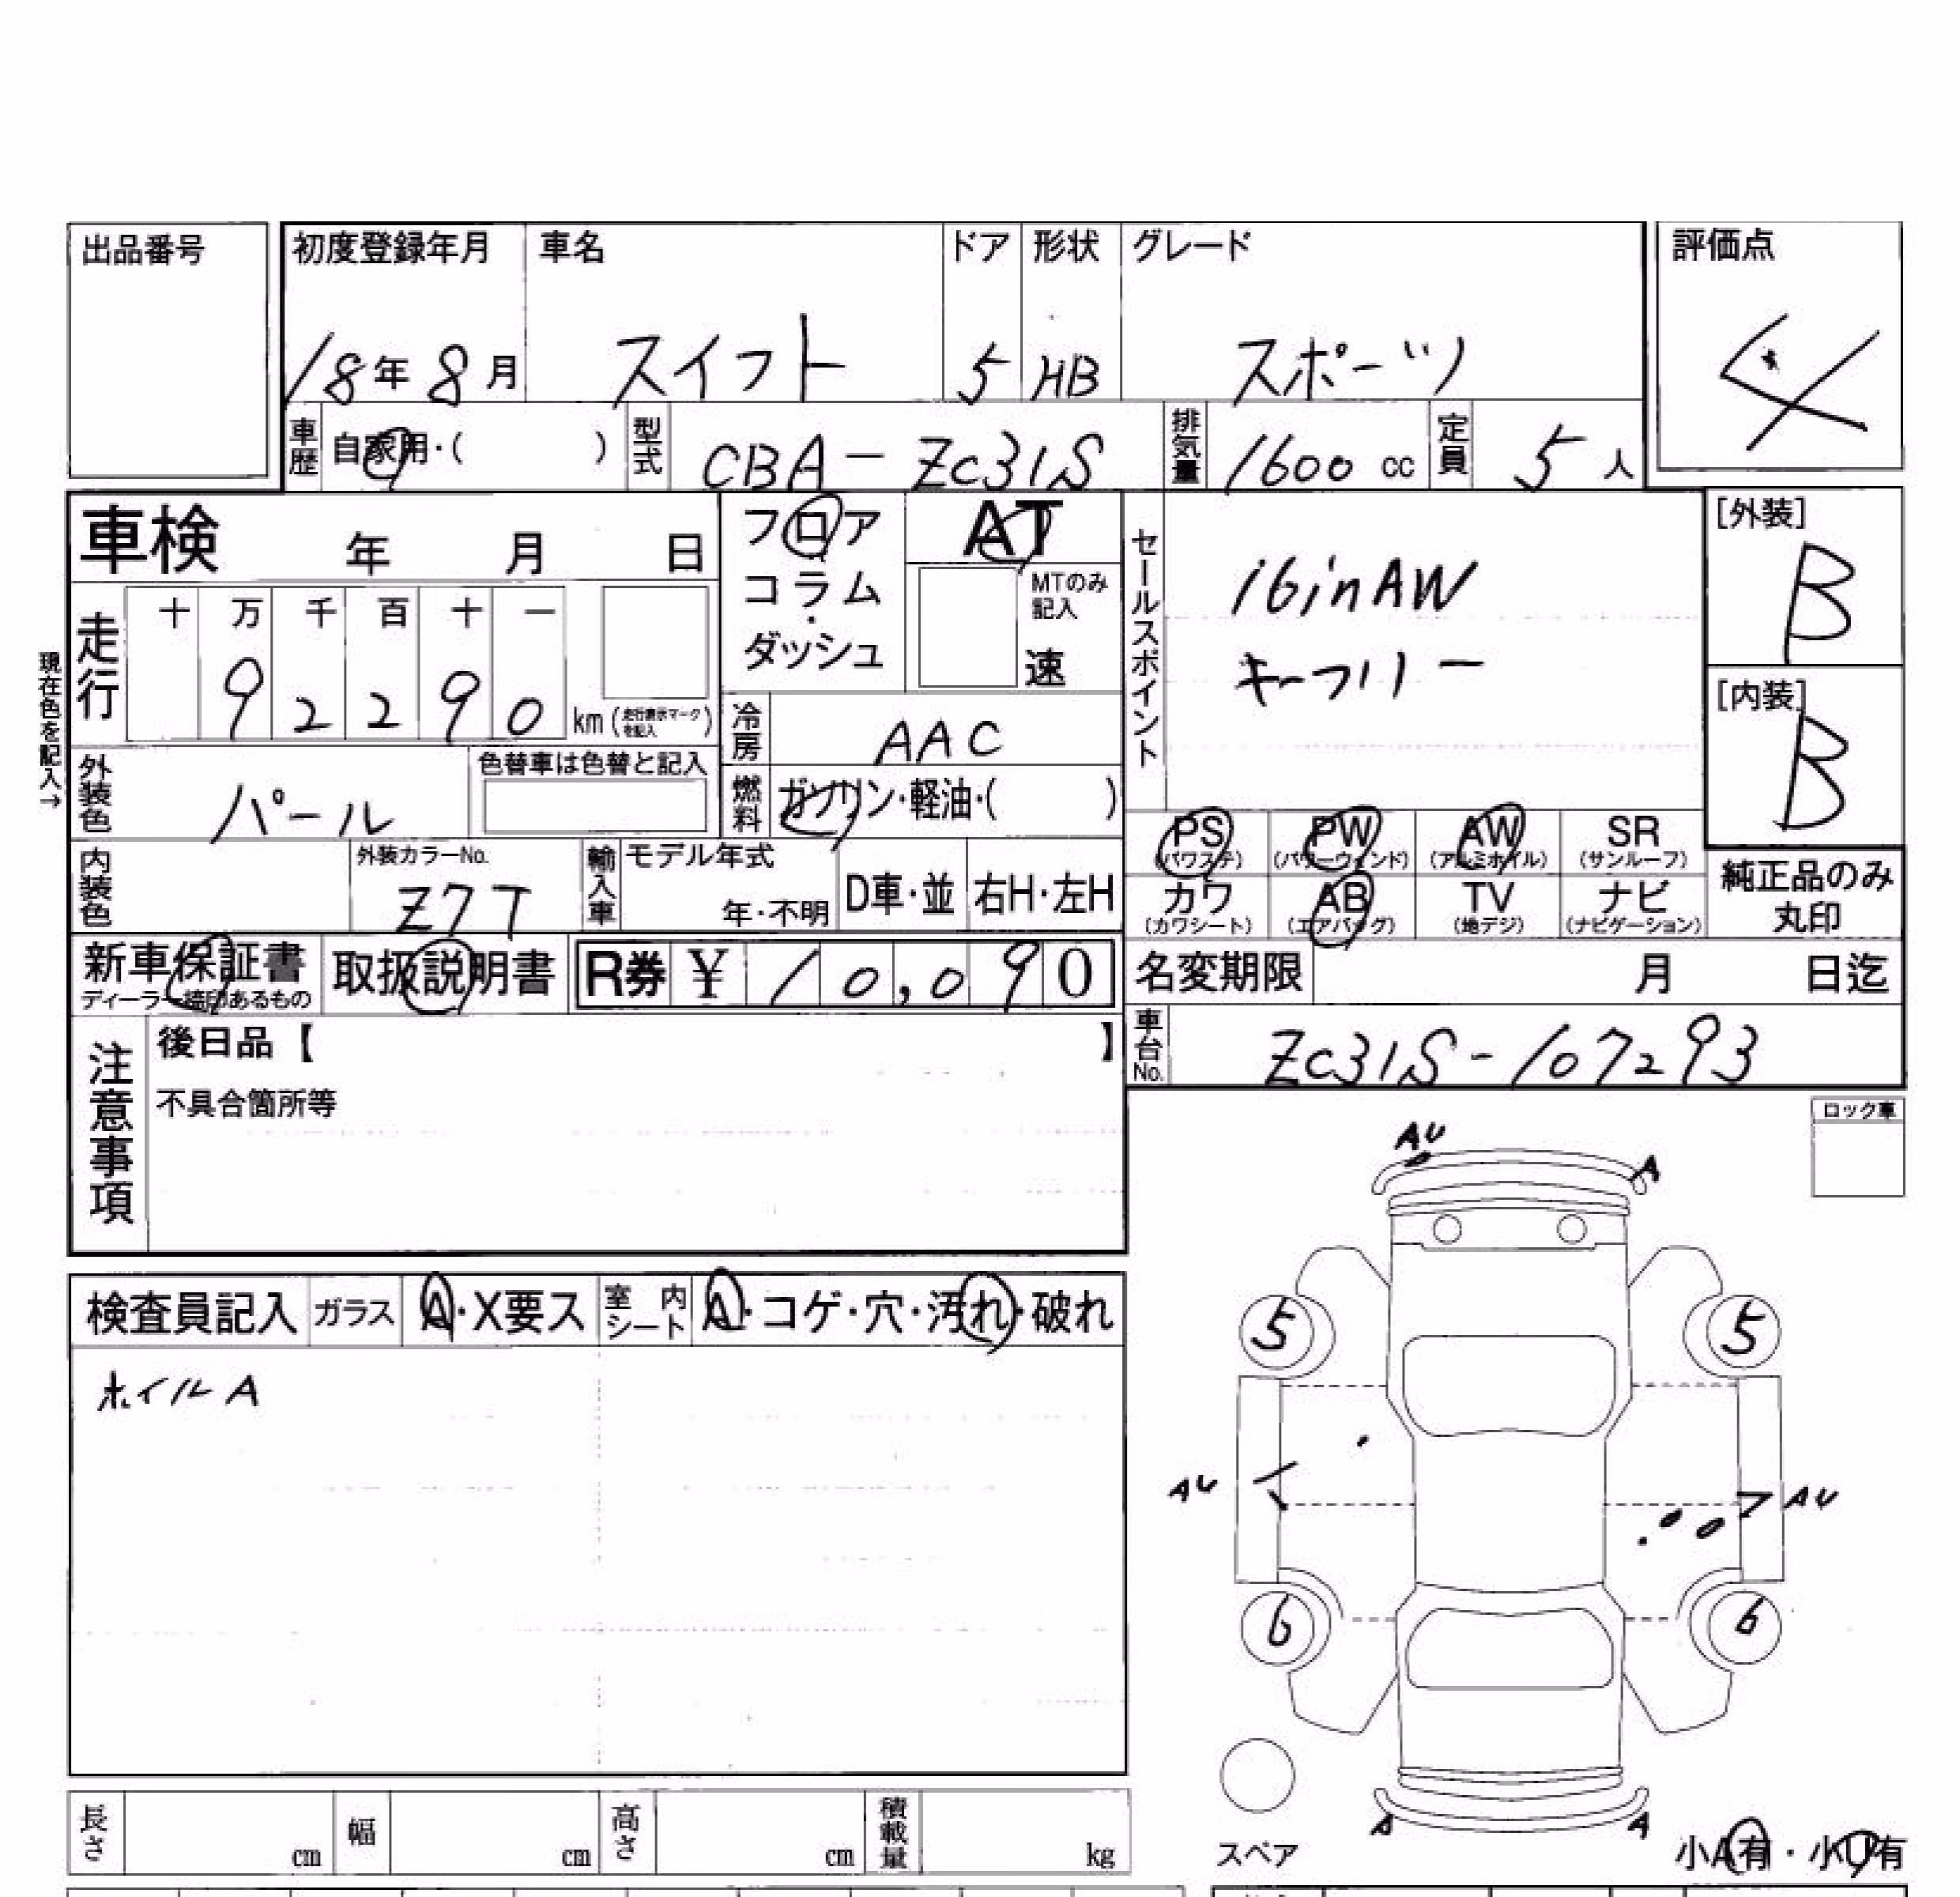 出品番号
初度登録年月 車名 ドア 形状 グレード 評価点
18年8月 スイフト 5 HB スポーツ 4
車歴 自家用・( ) 型式 CBA-ZC31S 排気量 1600cc 定員 5人
車検 年 月 日
フロア
コラム
・
ダッシュ
AT
MTのみ
記入
速
セールスポイント
16inAW
キーフリー
[外装]
B
[内装]
B
現在色を記入→
走行 十 万 千 百 十 一
9 2 2 9 0 km (走行表示マークを記入)
冷房 AAC
外装色 パール 色替車は色替と記入
燃料 ガソリン・軽油・( )
内装色 外装カラーNo. Z7T
輸入車 モデル年式 年・不明 D車・並 右H・左H
PS (パワステ) PW (パワーウィンド) AW (アルミホイル) SR (サンルーフ)
カワ (カワシート) AB (エアバッグ) TV (地デジ) ナビ (ナビゲーション)
純正品のみ
丸印
新車保証書 取扱説明書 R券 ¥ 10,090
ディーラー捺印あるもの
名変期限 月 日迄
車台No. ZC31S-107293
注意事項
後日品【 】
不具合箇所等
ロック車
AU
A
検査員記入 ガラス A・X要ス 室内シート A・コゲ・穴・汚れ・破れ
ホイルA
5 5
AU AU
6 6
A A
スペア
小A有・小U有
長さ cm 幅 cm 高さ cm 積載量 kg